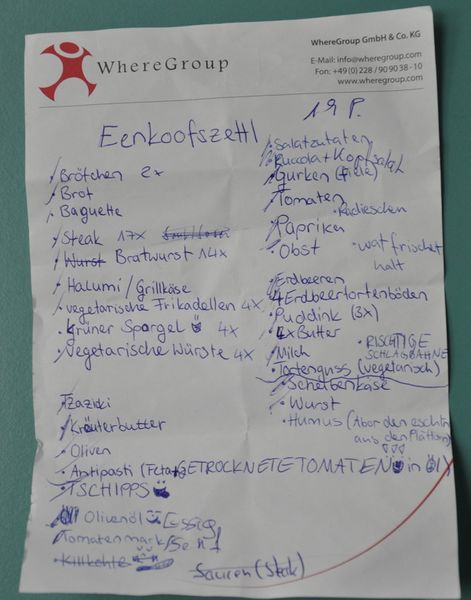 WhereGroup
WhereGroup GmbH & Co. KG
E-Mail: info@wheregroup.com
Fon: +49 (0) 228 / 90 90 38 - 10
www.wheregroup.com
19 P.
Eenkoofszettl
Brötchen 2x
Brot
Baguette
Steak 17x
Wurst Bratwurst 14x
Halumi / Grillkäse
vegetarische Frikadellen 4x
Grüner Spargel 4x
Vegetarische Würste 4x
Tzaziki
Kräuterbutter
Oliven
Antipasti (Feta + GETROCKNETE TOMATEN in ÖL)
TSCHIPPS
Olivenöl Essig
Tomatenmark / Senf
Killkohle
Saucen (Steak)
Salatzutaten
Rucola + Kopfsalat
Gurken (viele)
Tomaten
Radieschen
Paprika
Obst
wat frischet
halt
Erdbeeren
4 Erdbeertortenböden
Puddink (3x)
4x Butter
Milch
RISCHTIGE
SCHLAGBAHNE
Tortenguss (vegetarisch)
Scheibenkäse
Wurst
Humus (Abor den eschtn
aus den Plätton)